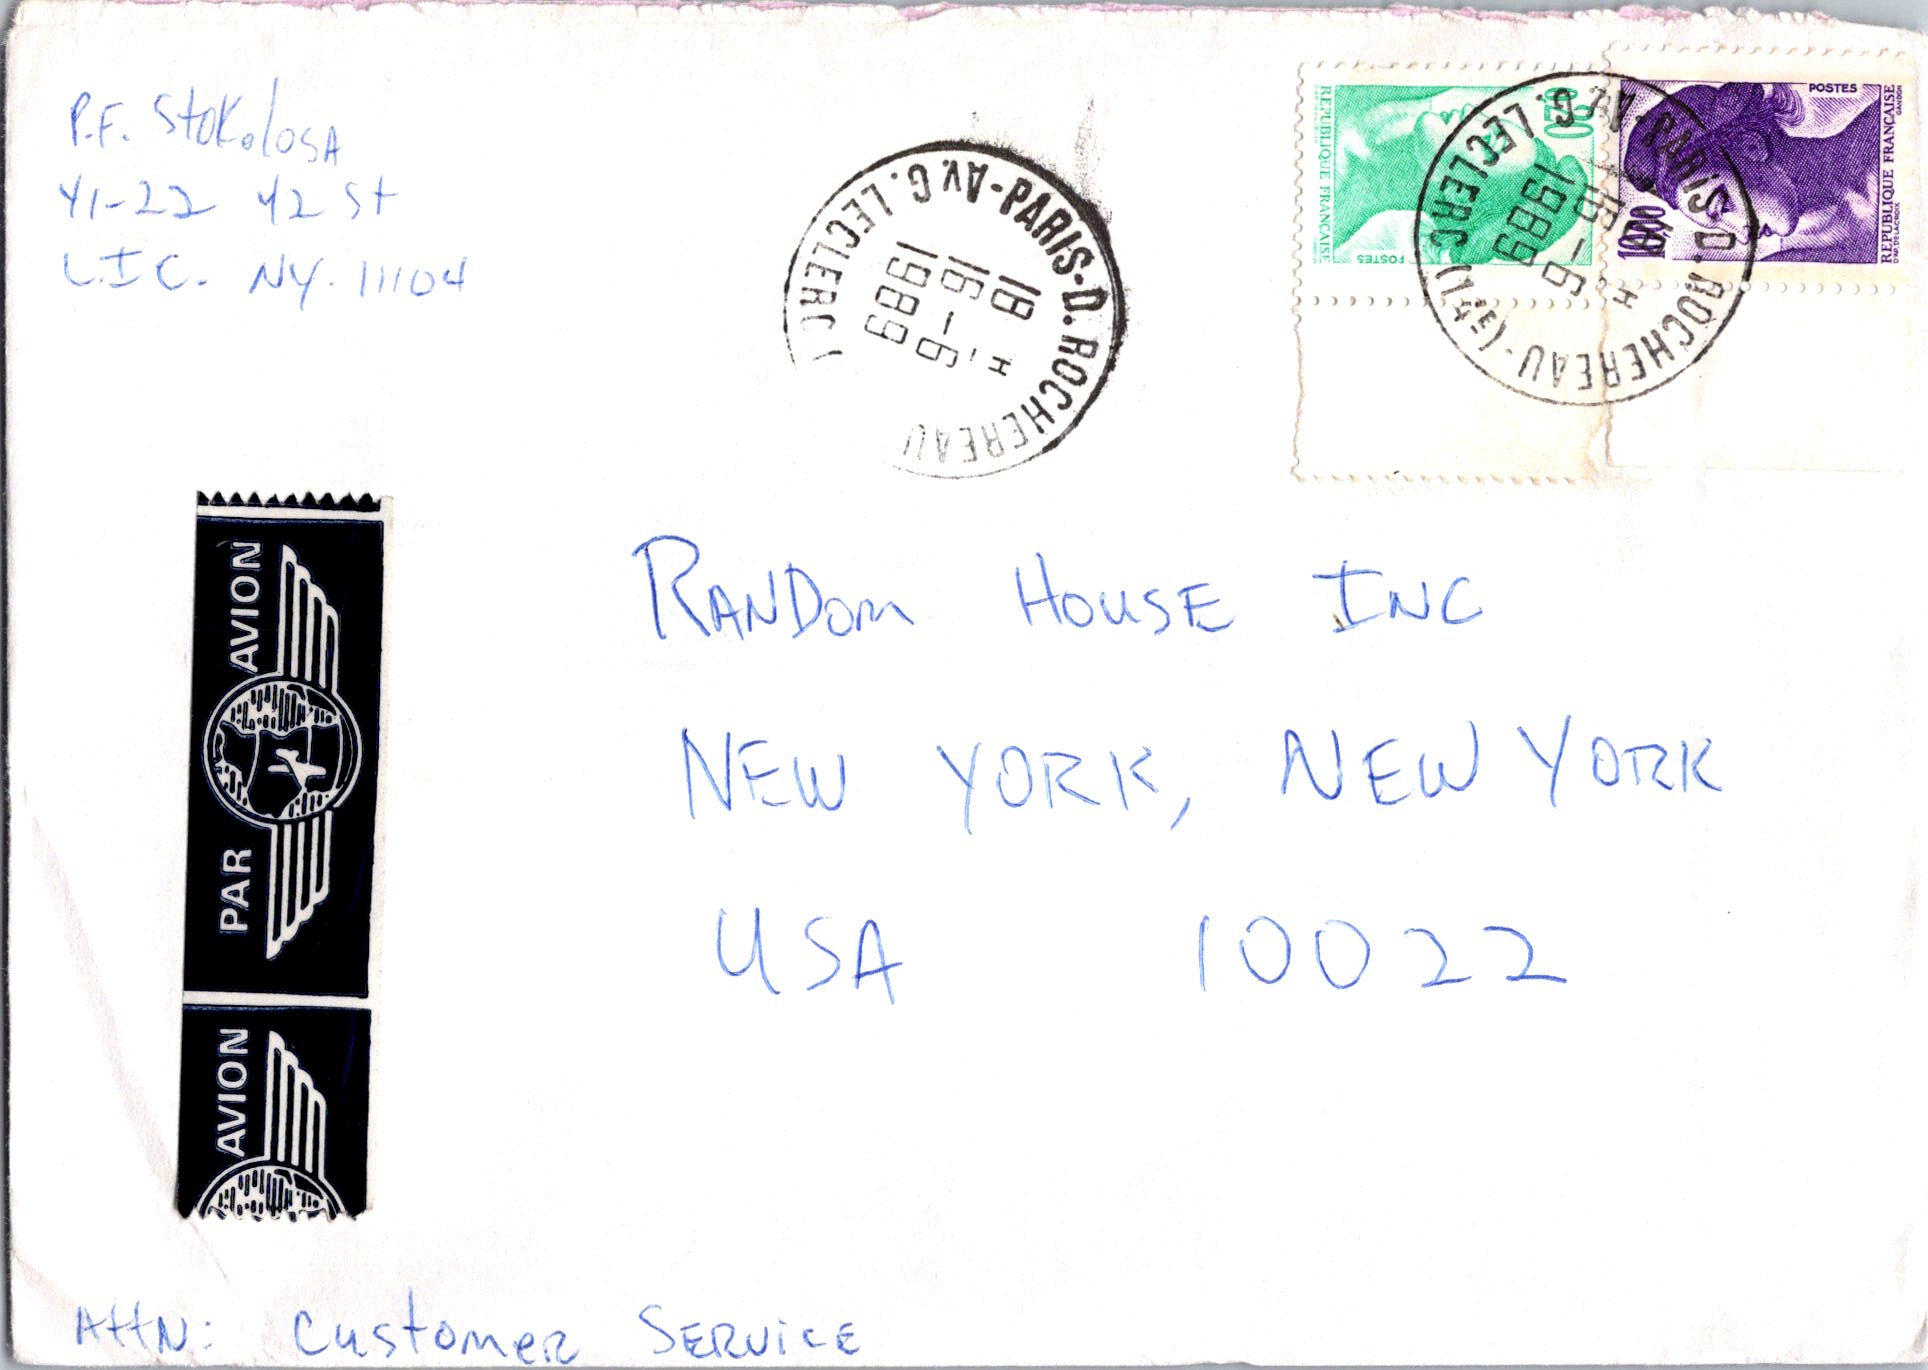 P.F. StOKolOSA
41-22 42 St
L.I.C. NY. 11104
PARIS-D. ROCHEREAU
AV. G. LECLERC (
18 H
16-6
1989
0,20
REPUBLIQUE FRANÇAISE
POSTES
10,00
POSTES
REPUBLIQUE FRANÇAISE
GANDON
D'AP. DELACROIX
PARIS-D. ROCHEREAU-(14E)
AV. G. LECLERC
H
16-6
1989
PAR AVION
AVION
RANDom HOUSE INC
NEW YORK, NEW YORK
USA 10022
AttN: Customer SERVICE